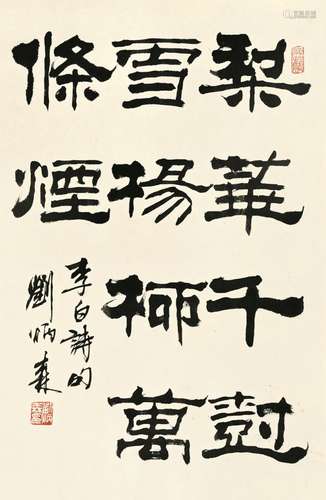 梨華千尌
雪楊柳萬
條煙
李白詩句
劉炳森